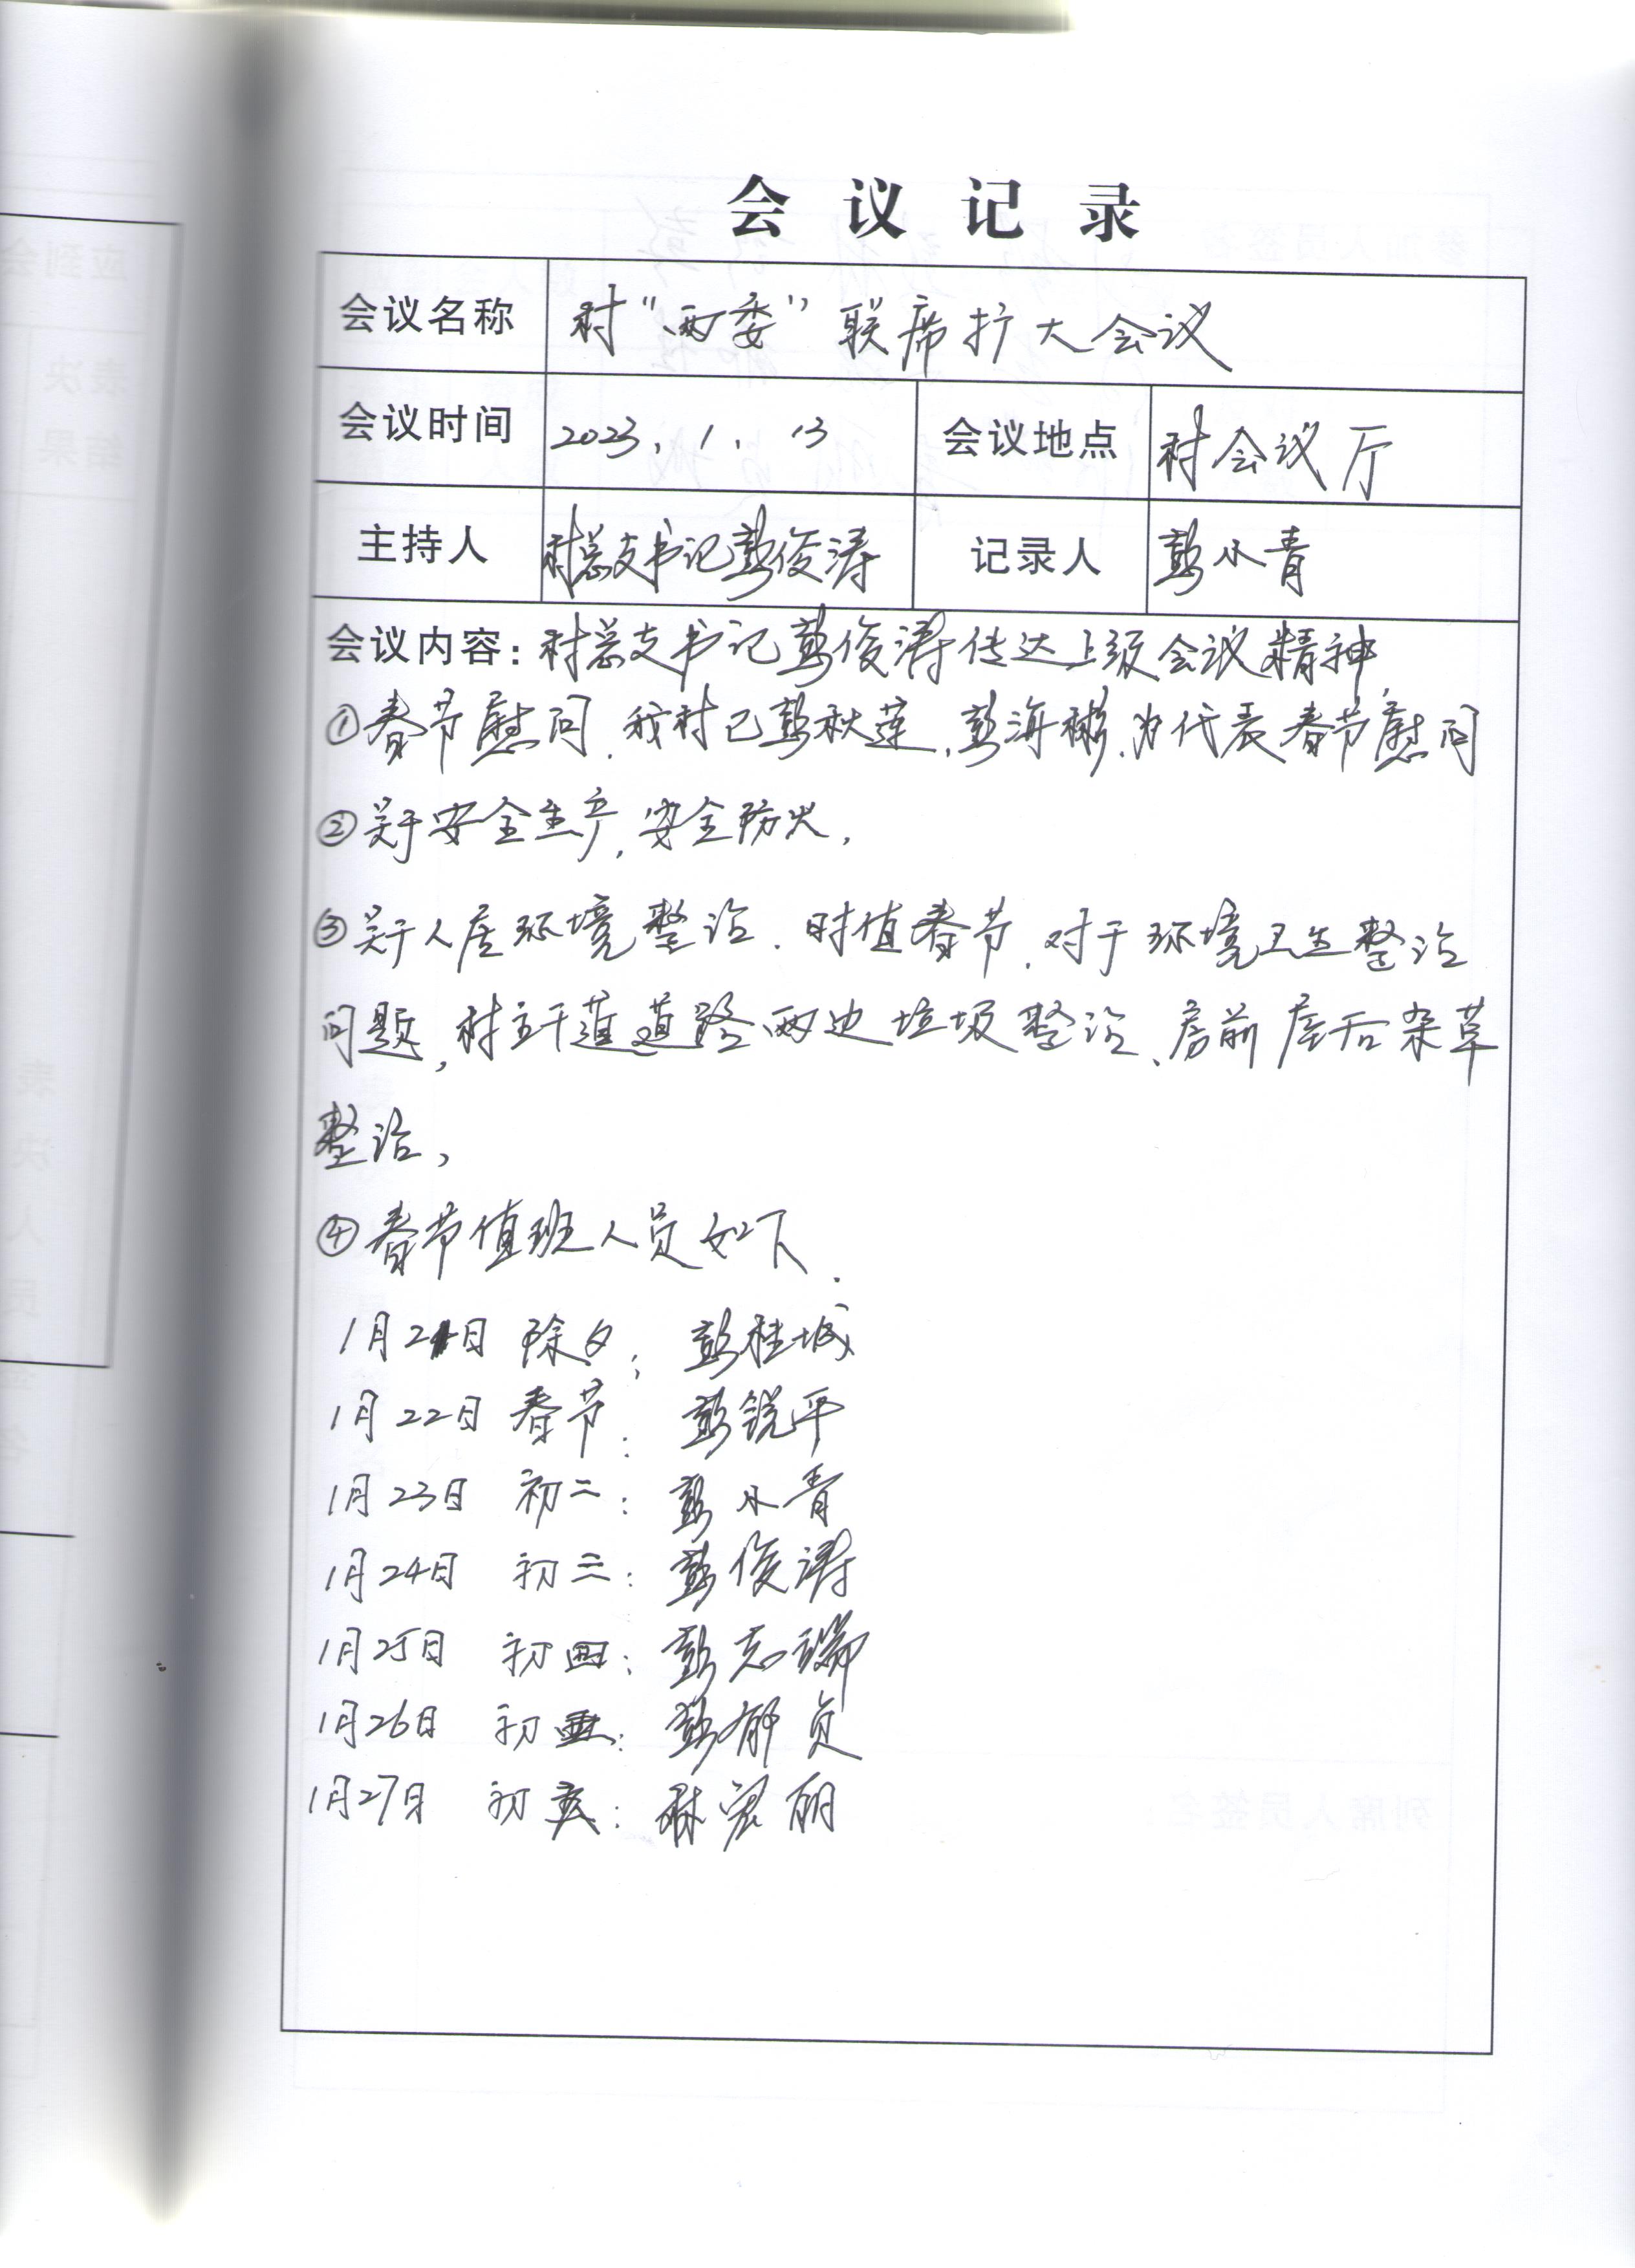 会议记录
会议名称 村“两委”联席扩大会议
会议时间 2023.1.13 会议地点 村会议厅
主持人 村总支书记彭俊涛 记录人 彭小青
会议内容：村总支书记彭俊涛传达上级会议精神
①春节慰问，我村已彭秋莲、彭海彬，为代表春节慰问
②关于安全生产，安全防火，
③关于人居环境整治，时值春节，对于环境卫生整治
问题，村主干道道路两边垃圾整治、房前屋后杂草
整治，
④春节值班人员如下：
1月21日 除夕：彭桂城
1月22日 春节：彭锐平
1月23日 初二：彭小青
1月24日 初三：彭俊涛
1月25日 初四：彭志瑞
1月26日 初五：彭郁贞
1月27日 初六：林宏丽
应到会
表决
结果
表决人员签名
参加人员签名
列席人员签名：